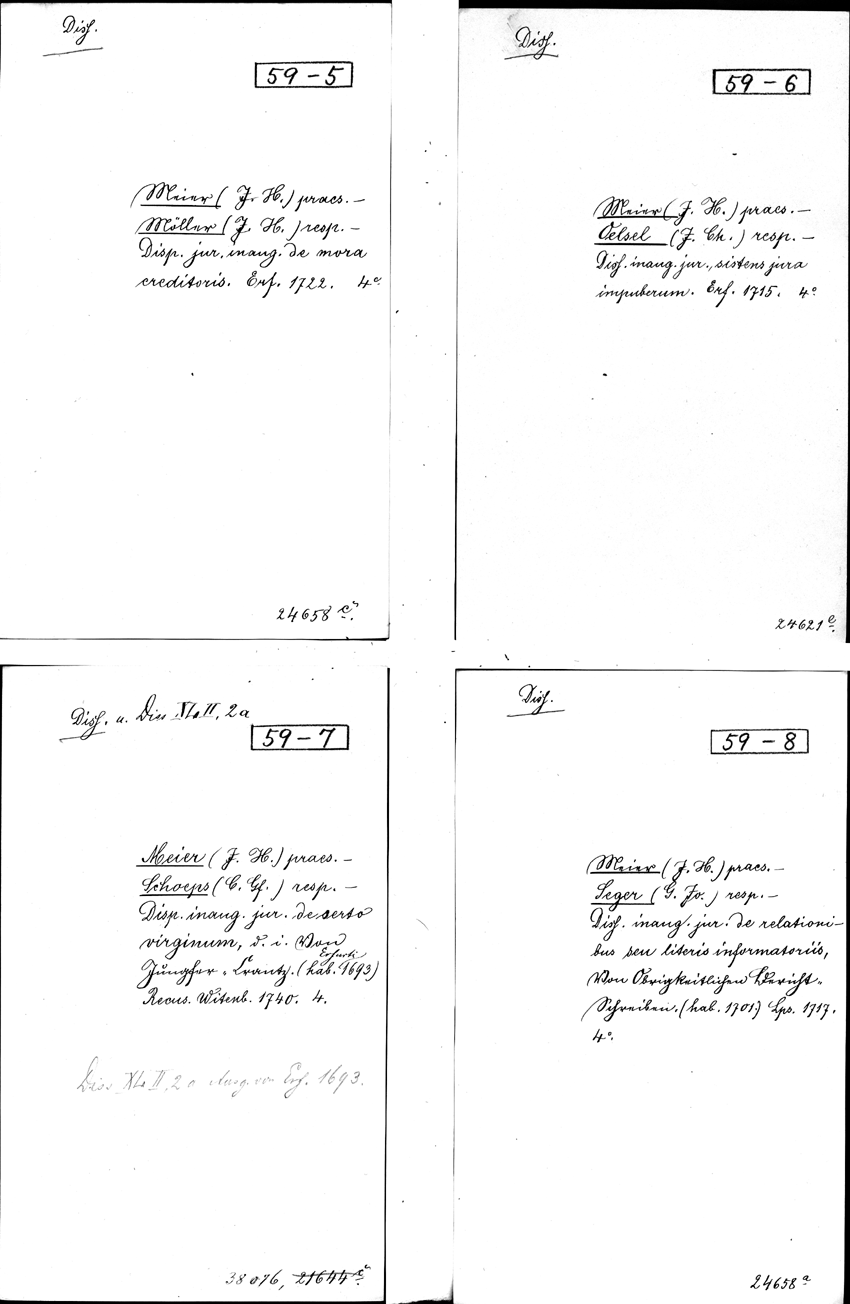 Diss.
59-5
Meier (J. H.) praes. —
Möller (J. H.) resp. —
Disp. jur. inaug. de mora
creditoris. Erf. 1722. 4°
24658 c.
Diss.
59-6
Meier (J. H.) praes. —
Oelsel (J. Ch.) resp. —
Diss. inaug. jur., sistens jura
impuberum. Erf. 1715. 4°
24621 e.
Diss. u. Diss II, 2a
59-7
Meier (J. H.) praes. —
Schoeps (C. Gf.) resp. —
Disp. inaug. jur. de serto
virginum, d. i. Von
Erfurti
Jungfer-Crantz. (hab. 1693)
Recus. Witenb. 1740. 4.
Diss II, 2a Ausg. von Erf. 1693.
38076, 21644 c.
Diss.
59-8
Meier (J. H.) praes. —
Seger (G. Jo.) resp. —
Diss. inaug. jur. de relationi-
bus seu literis informatoriis,
Von Obrigkeitlichen Bericht-
Schreiben. (hab. 1701.) Lps. 1717.
4°.
24658 a